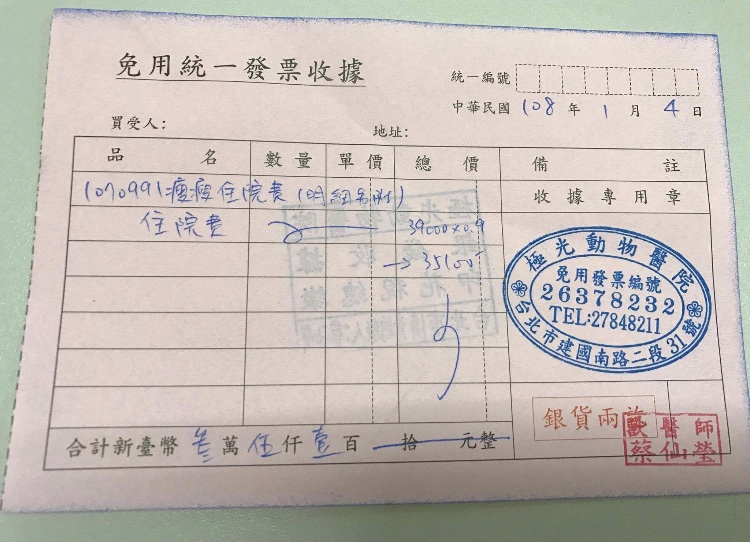 免用統一發票收據
統一編號
中華民國 108 年 1 月 4 日
買受人: 地址:
品名 數量 單價 總價 備註
1070991瘦瘦住院費(明細另附) 收據專用章
住院費 39000×0.9
→35100
極光動物醫院
免用發票編號
26378232
TEL:27848211
台北市建國南路二段31號
銀貨兩訖
獸醫師
蔡仙瑩
合計新臺幣 叁萬伍仟壹百拾元整